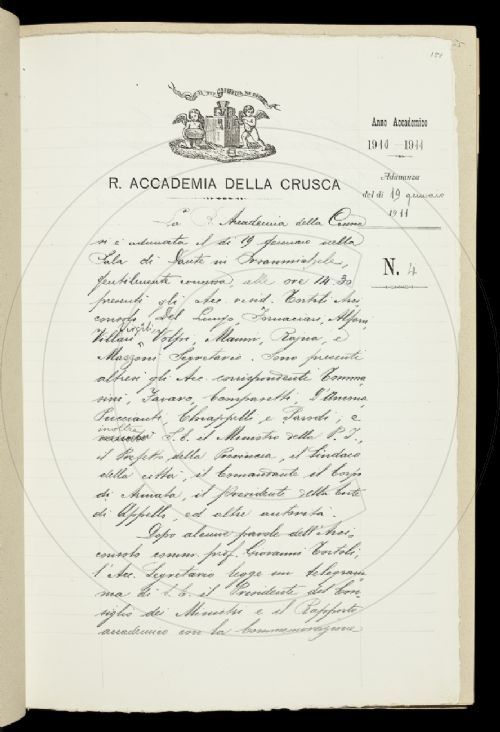 25
121
IL PIÙ BEL FIOR NE COGLIE
R. ACCADEMIA DELLA CRUSCA
Anno Accademico
1910 - 1911
Adunanza
del dì 19 gennaio
1911
N. 4
La R. Accademia della Crusca
si è adunata il dì 19 gennaio nella
Sala di Dante in Orsanmichele,
gentilmente concessa, alle ore 14.30
presenti gli Acc. resid. Tortoli Arci-
consolo, Del Lungo, Fornaciari, Alfani,
Villari, Vigilii, Volpi, Mazzi, Rajna, e
Mazzoni Segretario. Sono presenti
altresì gli Acc. corrispondenti Tomma-
sini, Favaro, Comparetti, D'Ancona
Picciòla, Chiappelli e Parodi; e
inoltre S. E. il Ministro della P. I.,
il Prefetto della Provincia, il Sindaco
della città, il Comandante il Corpo
di Armata, il Presidente della Corte
di Appello, ed altre autorità.
Dopo alcune parole dell'Arci-
consolo comm. prof. Giovanni Tortoli,
l'Acc. Segretario legge un telegram-
ma di S. E. il Presidente del Con-
siglio dei Ministri e il Rapporto
accademico con la Commemorazione